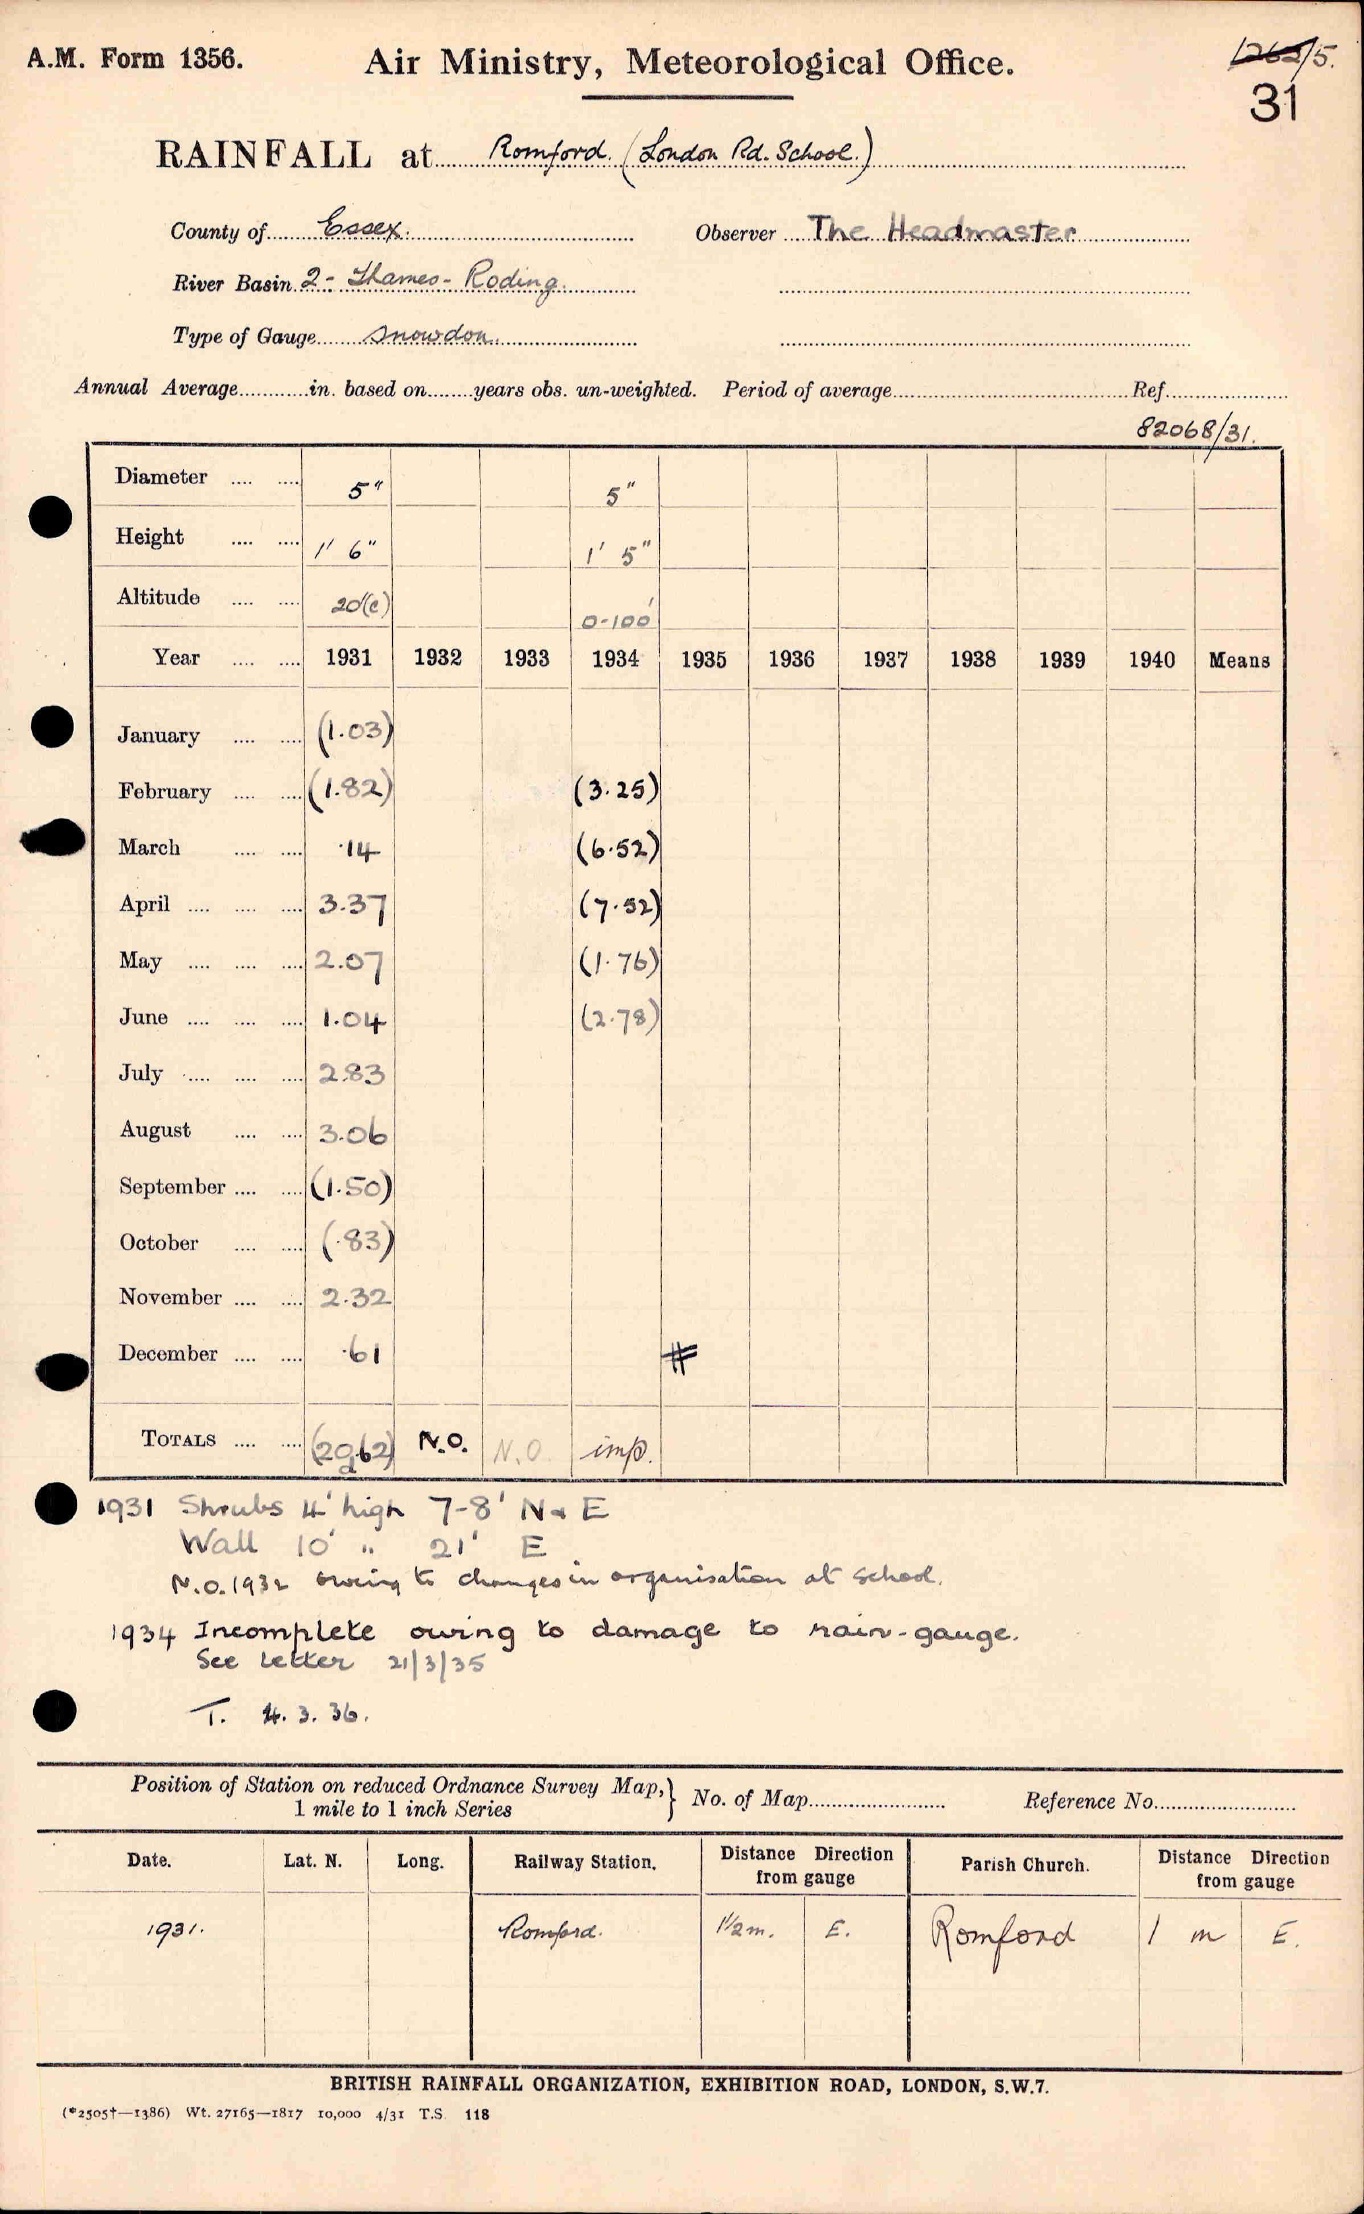 A.M. Form 1356.
Air Ministry, Meteorological Office.
1262/5.
31
RAINFALL at Romford. (London Rd. School.)
County of Essex. Observer The Headmaster
River Basin 2 - Thames - Roding.
Type of Gauge Snowdon.
Annual Average in. based on years obs. un-weighted. Period of average Ref.
82068/31.
Diameter 5" 5"
Height 1' 6" 1' 5"
Altitude 20'(c) 0-100'
Year 1931 1932 1933 1934 1935 1936 1937 1938 1939 1940 Means
January (1.03)
February (1.82) (3.25)
March .14 (6.52)
April 3.37 (7.52)
May 2.07 (1.76)
June 1.04 (2.78)
July 2.83
August 3.06
September (1.50)
October (.83)
November 2.32
December .61 #
TOTALS (20.62) N.O. N.O. imp.
a
1931 Shrubs 4' high 7-8' N & E
Wall 10' " 21' E
N.O. 1932 owing to changes in organisation at school.
1934 Incomplete owing to damage to rain-gauge.
See letter 21/3/35
T. 4.3.36.
Position of Station on reduced Ordnance Survey Map, } No. of Map Reference No.
1 mile to 1 inch Series
Date. Lat. N. Long. Railway Station. Distance Direction from gauge Parish Church. Distance Direction from gauge
1931. Romford. 1½ m. E. Romford 1 m E.
BRITISH RAINFALL ORGANIZATION, EXHIBITION ROAD, LONDON, S.W.7.
(*2505†—1386) Wt. 27165—1817 10,000 4/31 T.S. 118